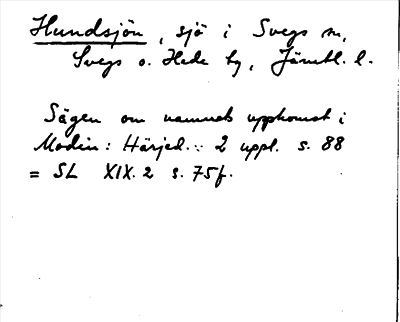 Hundsjön, sjö i Svegs m,
Svegs o. Hede tg, Jämtl. l.
Sägen om namnets uppkomst i
Modin: Härjed. : 2 uppl. s. 88
= SL XIX. 2 s. 75f.